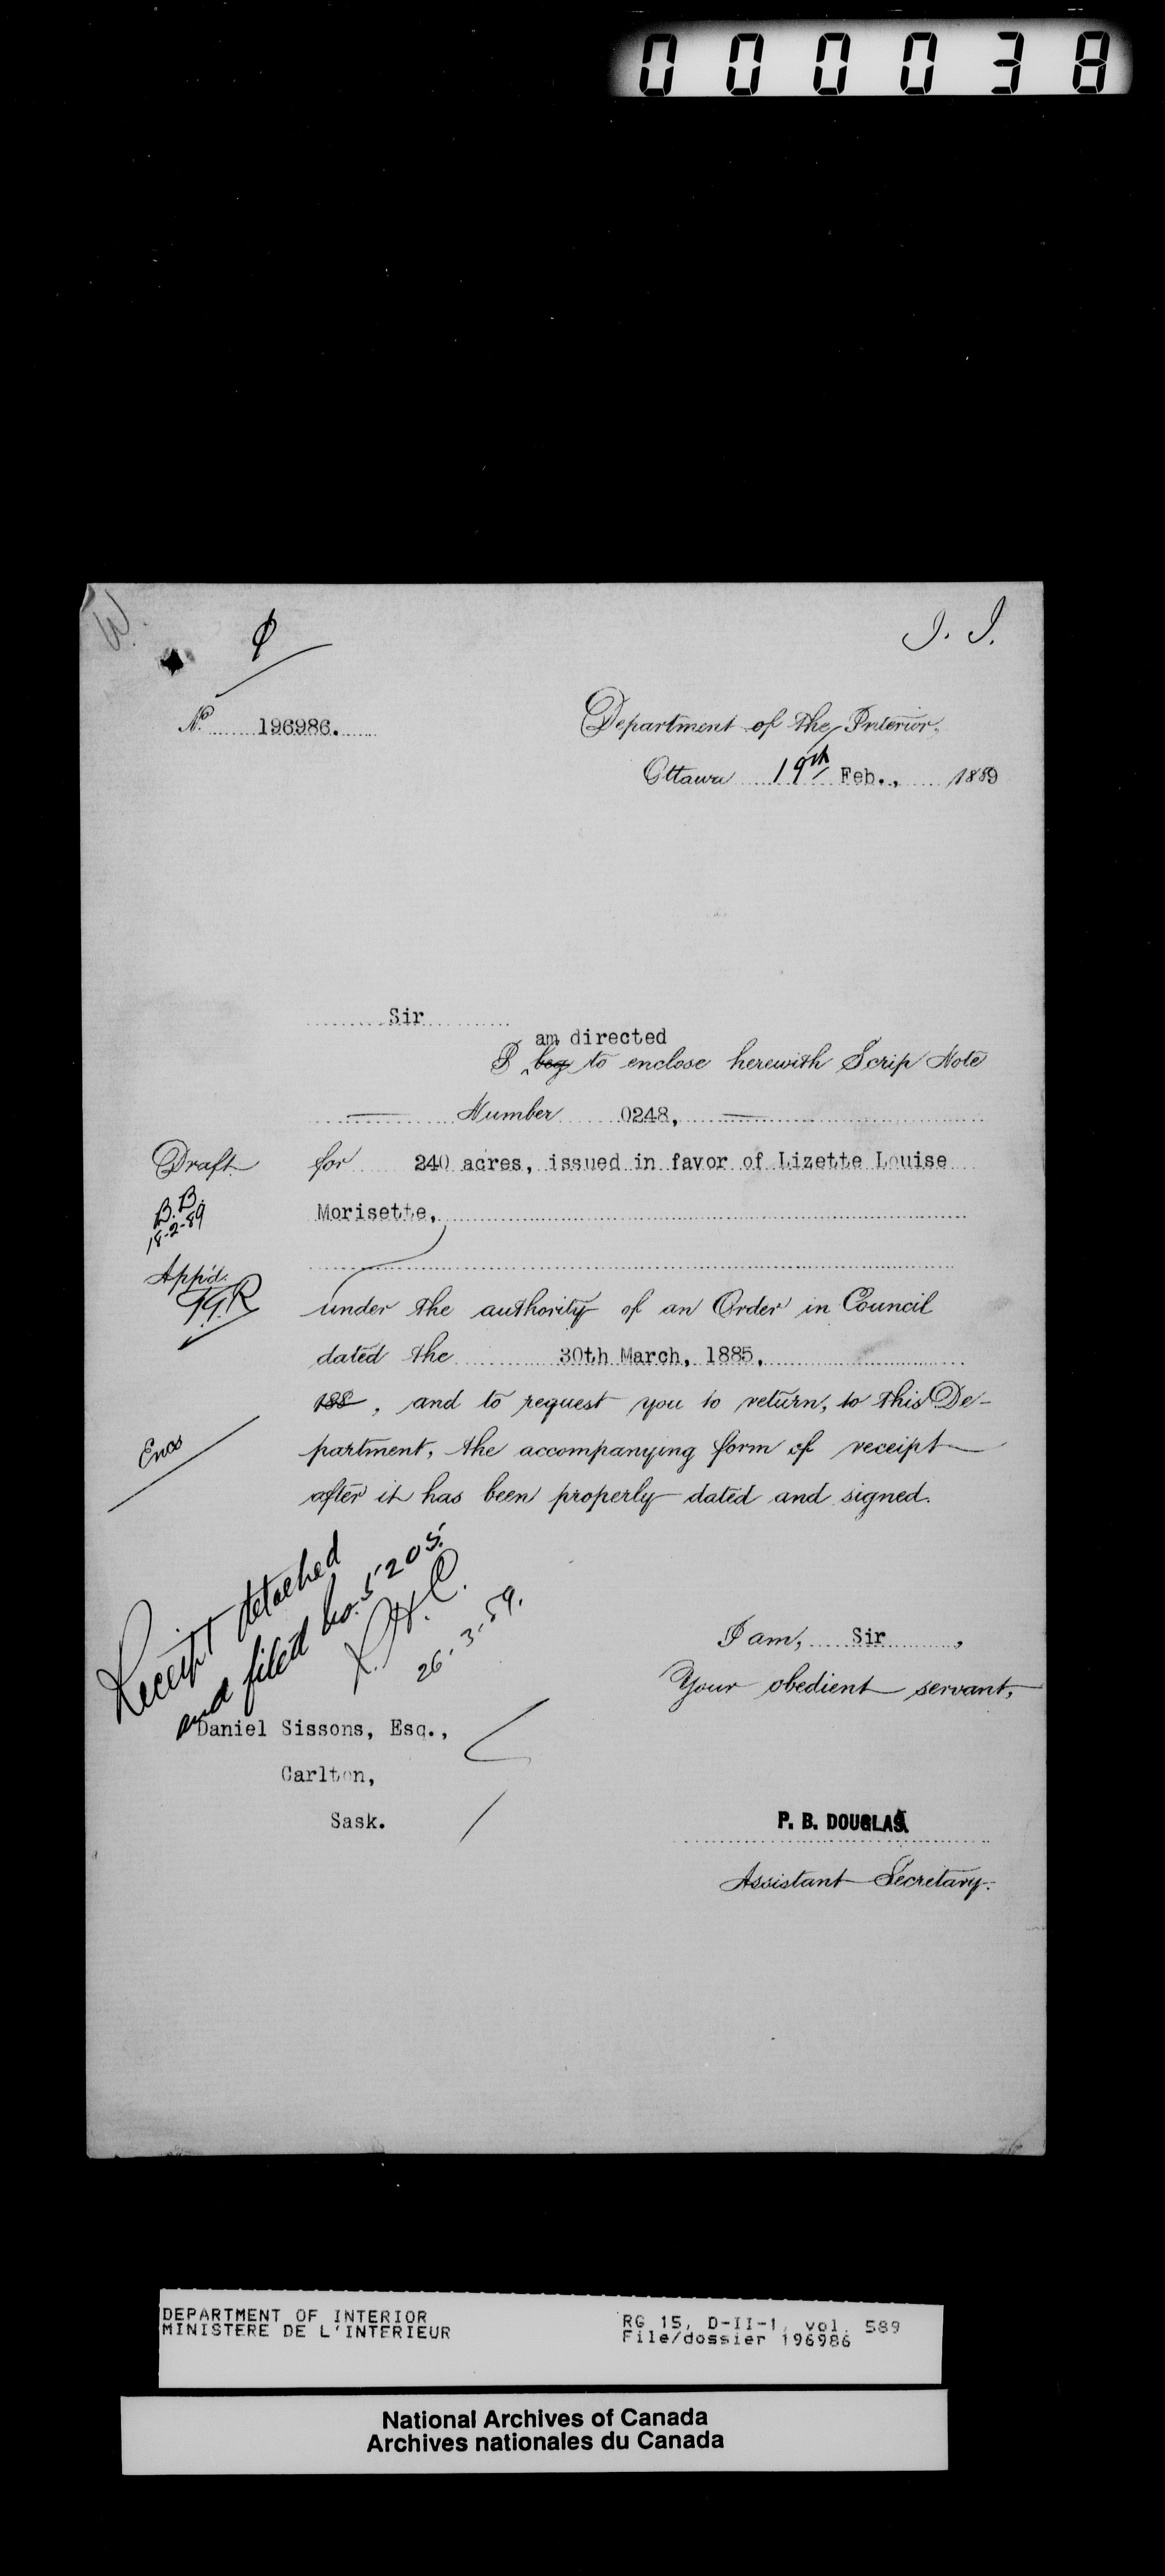 000038
W.
J. J.
No 196986.
Department of the Interior,
Ottawa 19th Feb., 1889
Sir
am directed
I beg to enclose herewith Scrip Note
Number 0248,
Draft for 240 acres, issued in favor of Lizette Louise
B.B. Morisette,
18-2-89
App'd.
under the authority of an Order in Council
dated the 30th March, 1885,
188 , and to request you to return, to this De-
Encs partment, the accompanying form of receipt
after it has been properly dated and signed.
Receipt detached
and filed no. 5205.
26-3-59.
I am, Sir ,
Your obedient servant,
Daniel Sissons, Esq.,
Carlton,
Sask.
P. B. DOUGLAS.
Assistant Secretary.
DEPARTMENT OF INTERIOR RG 15, D-II-1, vol. 589
MINISTERE DE L'INTERIEUR File/dossier 196986
National Archives of Canada
Archives nationales du Canada